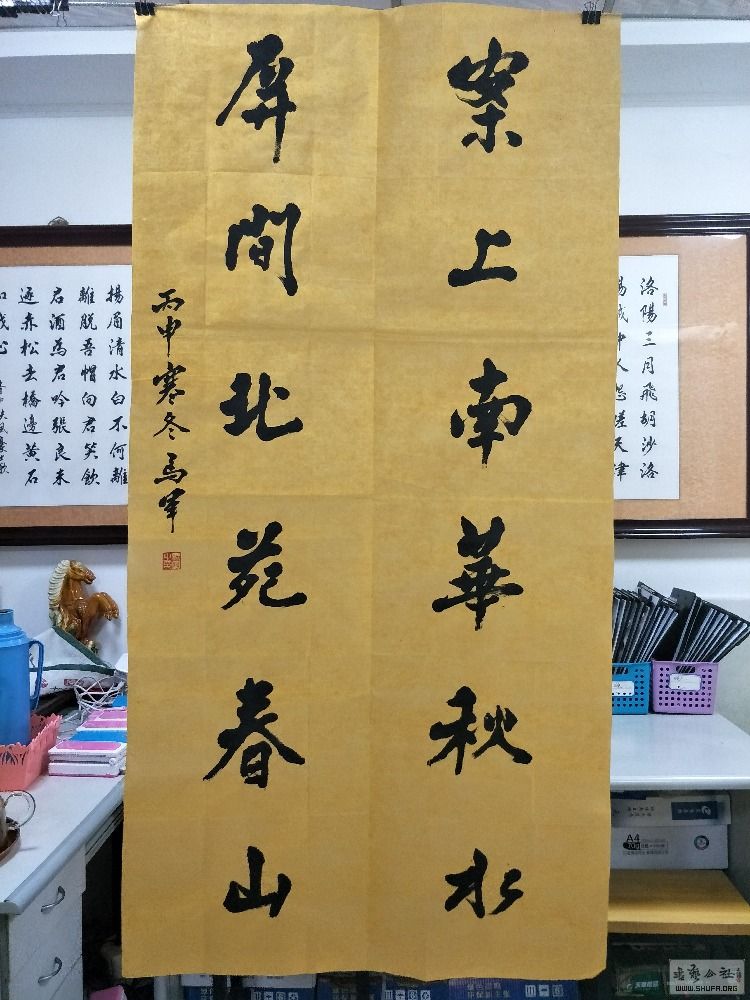 案上南華秋水
屏間北苑春山
丙申寒冬馬軍
洛陽三月飛胡沙洛
陽城中人怨嗟天津
揚眉清水白石何離
離脱吾帽向君笑飲
君酒為君吟張良未
逐赤松去橋邊黃石
知我心
A4
70g
WWW.SHUFA.ORG